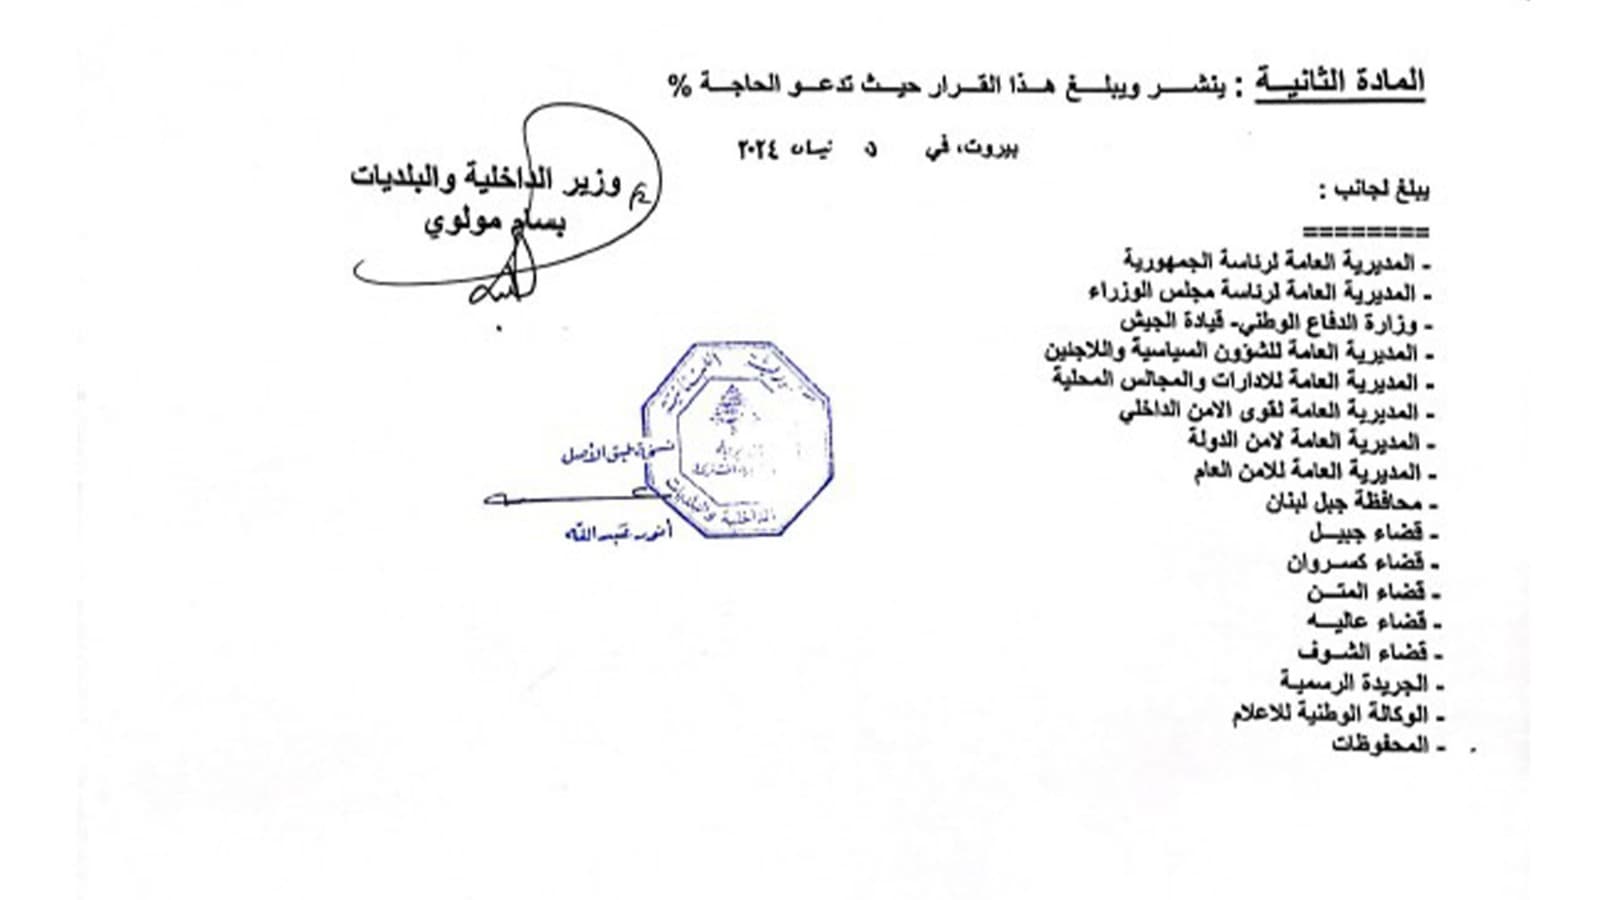 المادة الثانيـة : ينشـــر ويبلـــغ هـذا القـرار حيـث تدعـو الحاجـة %
بيروت، في ٥ نيسان ٢٠٢٤
وزير الداخلية والبلديات
بسام مولوي
يبلغ لجانب :
========
- المديرية العامة لرئاسة الجمهورية
- المديرية العامة لرئاسة مجلس الوزراء
- وزارة الدفاع الوطني- قيادة الجيش
- المديرية العامة للشؤون السياسية واللاجئين
- المديرية العامة للادارات والمجالس المحلية
- المديرية العامة لقوى الامن الداخلي
- المديرية العامة لامن الدولة
- المديرية العامة للامن العام
- محافظة جبل لبنان
- قضاء جبيـل
- قضاء كسـروان
- قضاء المتـن
- قضاء عاليـه
- قضاء الشـوف
- الجريدة الرسمية
- الوكالة الوطنية للاعلام
- المحفوظات
نسخة طبق الأصل
أنور عبدالله
الداخلية والبلديات